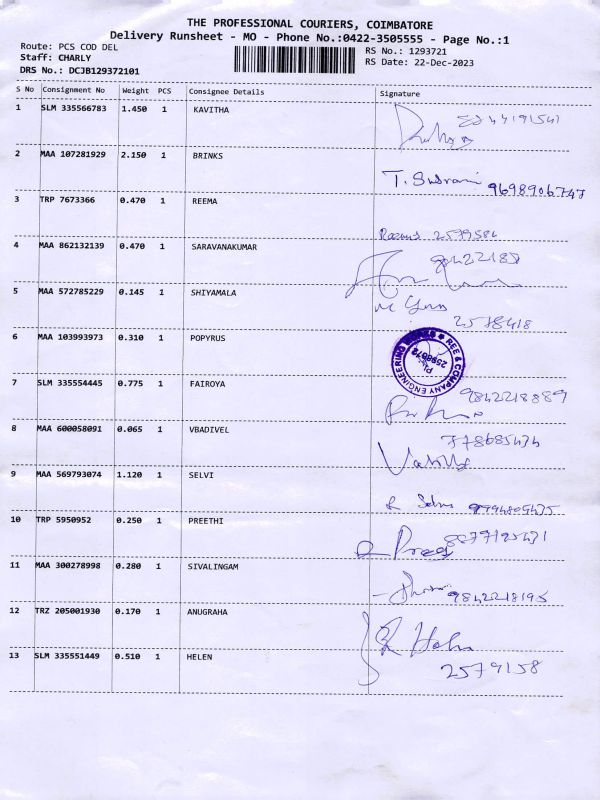 THE PROFESSIONAL COURIERS, COIMBATORE
Delivery Runsheet - MO - Phone No.:0422-3505555 - Page No.:1
Route: PCS COD DEL
RS No.: 1293721
Staff: CHARLY
RS Date: 22-Dec-2023
DRS No.: DCJB129372101
S No Consignment No Weight PCS Consignee Details Signature
1 SLM 335566783 1.450 1 KAVITHA
2 MAA 107281929 2.150 1 BRINKS
9698906747
3 TRP 7673366 0.470 1 REEMA
2599586
4 MAA 862132139 0.470 1 SARAVANAKUMAR
5 MAA 572785229 0.145 1 SHIYAMALA
2578418
6 MAA 103993973 0.310 1 POPYRUS
REE & COMPANY ENGINEERING WORKS
7 SLM 335554445 0.775 1 FAIROYA
9842218889
8 MAA 600058091 0.065 1 VBADIVEL
9 MAA 569793074 1.120 1 SELVI
10 TRP 5950952 0.250 1 PREETHI
11 MAA 300278998 0.280 1 SIVALINGAM
9842218195
12 TRZ 205001930 0.170 1 ANUGRAHA
13 SLM 335551449 0.510 1 HELEN
2579158